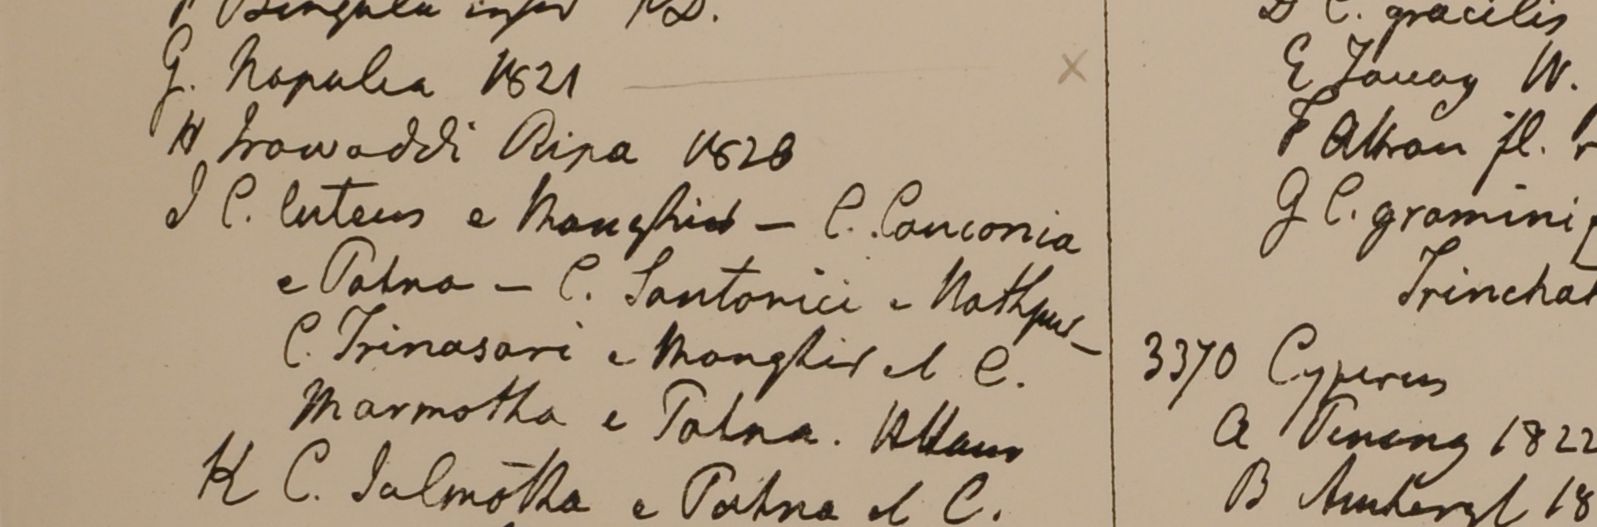 F Singula infor HD.
G. Napalia 1821
H Irawaddi Ripa 1828
I C. luteus e Monghir – C. Cauconia
e Patna – C. Santonici e Nathpur –
C. Trinasari e Monghir et C.
Marmotha e Patna. HHam
K C. Salmōtha e Patna et C.
D C. gracilis
E Tavoy W.
F Attran fl. r
G C. gramini
Trinchat
3370 Cyperus
A Penang 1822
B Amherst 18